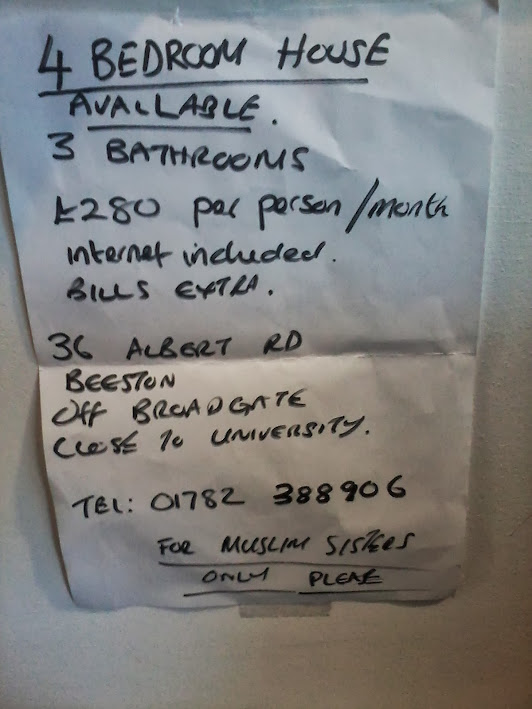 4 BEDROOM HOUSE
AVAILABLE.
3 BATHROOMS
£280 per person/month
internet included.
BILLS EXTRA.
36 ALBERT RD
BEESTON
Off BROADGATE
CLOSE To UNIVERSITY.
TEL: 01782 388906
FOR MUSLIM SISTERS
ONLY PLEASE